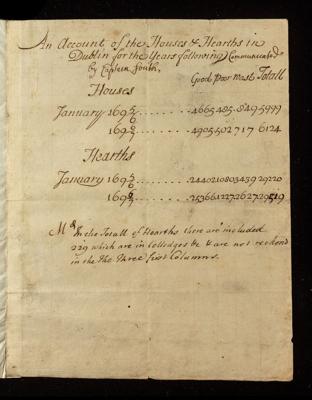 An Account of the Houses & Hearths in
Dublin for the Years following Communicated
by Captain South.
Good Poor Wast Totall
Houses
January 169 5/6 . . . . . . . . 4665 485 849 5999
169 6/7 . . . . . . . . 4905 502 717 6124
Hearths
January 169 5/6 . . . . . . . . 24402 1080 3439 29220
In the Totall of Hearths there are included
229 which are in Colledges & & are not reckon'd
in the Three first Columns.